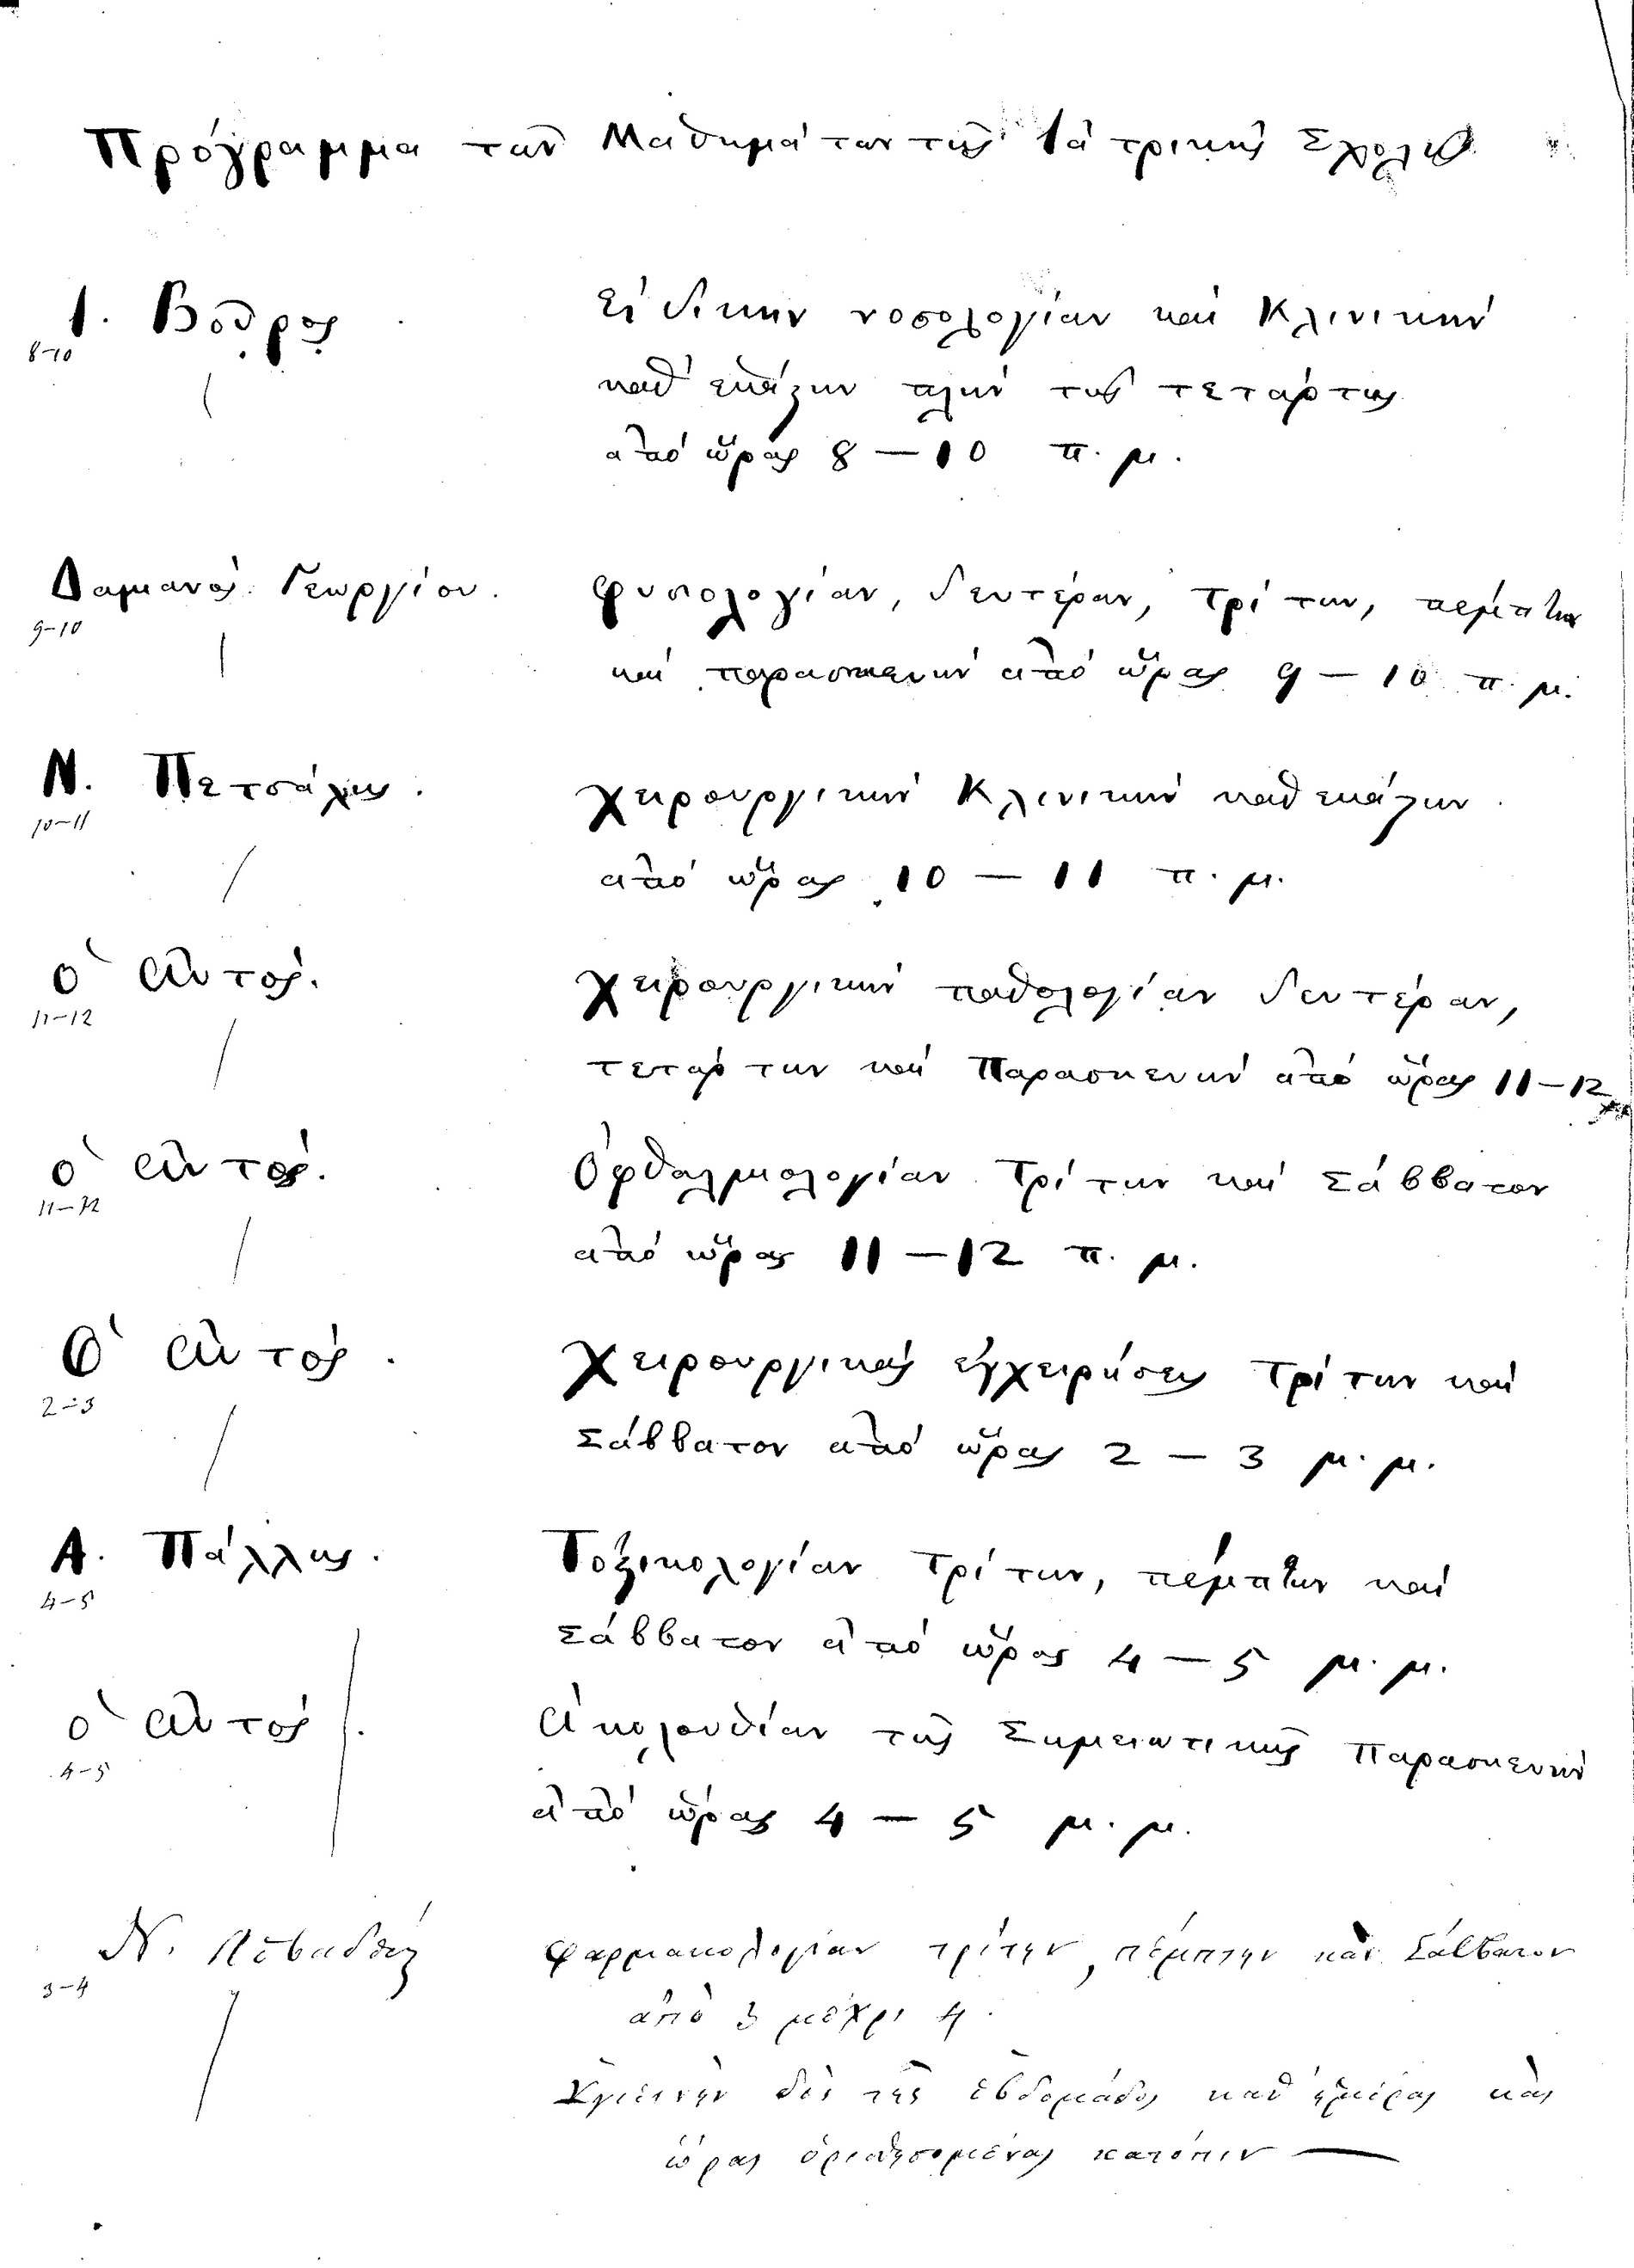 Πρόγραμμα τῶν Μαθημάτων τῆς Ἰατρικῆς Σχολῆς
Ι. Βοῦρος. Εἰδικὴν νοσολογίαν καὶ Κλινικὴν
8-10
καθ' ἑκάστην πλὴν τῆς τετάρτης
ἀπὸ ὥρας 8 — 10 π. μ.
Δαμιανός. Γεωργίου. Φυσιολογίαν, δευτέραν, τρίτην, πέμπτην
9-10
καὶ παρασκευὴν ἀπὸ ὥρας 9 — 10 π. μ.
Ν. Πετσάλης. Χειρουργικὴν Κλινικὴν καθ ἑκάστην
10-11
ἀπὸ ὥρας 10 — 11 π. μ.
ὁ αὐτός. Χειρουργικὴν παθολογίαν δευτέραν,
11-12
τετάρτην καὶ Παρασκευὴν ἀπὸ ὥρας 11 — 12
ὁ αὐτός. Ὀφθαλμολογίαν τρίτην καὶ Σάββατον
11-12
ἀπὸ ὥρας 11 — 12 π. μ.
Ὁ αὐτὸς. Χειρουργικὰς ἐγχειρήσεις τρίτην καὶ
2-3
Σάββατον ἀπὸ ὥρας 2 — 3 μ. μ.
Α. Πάλλης. Τοξικολογίαν τρίτην, πέμπτην καὶ
4-5
Σάββατον ἀπὸ ὥρας 4 — 5 μ. μ.
ὁ αὐτός. Ἀκολουθίαν τῆς Σημειωτικῆς Παρασκευὴν
4-5
ἀπὸ ὥρας 4 — 5 μ. μ.
Ν. Φαρμακολογίαν τρίτην, πέμπτην καὶ Σάββατον
3-4
ἀπὸ 3 μέχρι 4.
Ὑγιεινὴν δὶς τῆς ἑβδομάδος καθ' ἡμέρας καὶ
ὥρας ὁρισθησομένας κατόπιν —